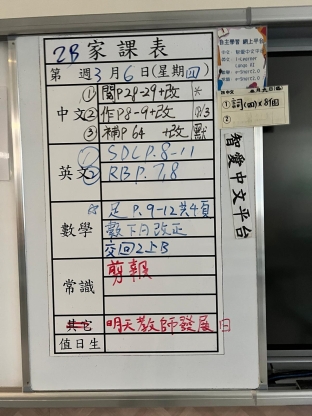 2B 家課表
第 週3月6日(星期四)
中文
① 閱P.28-29+改 *
② 作P8-9+改
③ 補P64 +改 默
英文
① SDL P.8-11
② RBP.7,8
數學
☆ 足 P.9-12共4頁
數下月改正
交回2上B
常識
剪報
其它
明天教師發展日
值日生
自主學習 網上平台
① 詞(四)x8個
②
智愛中文平台